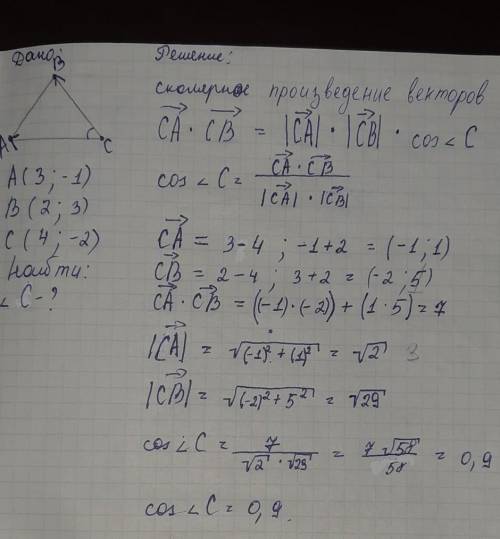 Дано:
B
A
C
A(3; -1)
B(2; 3)
C(4; -2)
Найти:
∠C - ?
Решение:
скалярное произведение векторов
CA⃗ · CB⃗ = |CA⃗| · |CB⃗| · cos∠C
cos∠C = CA⃗ · CB⃗ / |CA⃗| · |CB⃗|
CA⃗ = 3-4 ; -1+2 = (-1; 1)
CB⃗ = 2-4 ; 3+2 = (-2; 5)
CA⃗ · CB⃗ = ((-1)·(-2)) + (1·5) = 7
|CA⃗| = √((-1)² + (1)²) = √2 3
|CB⃗| = √((-2)² + 5²) = √29
cos∠C = 7 / √2 · √29 = 7√58 / 58 = 0,9
cos∠C = 0,9.